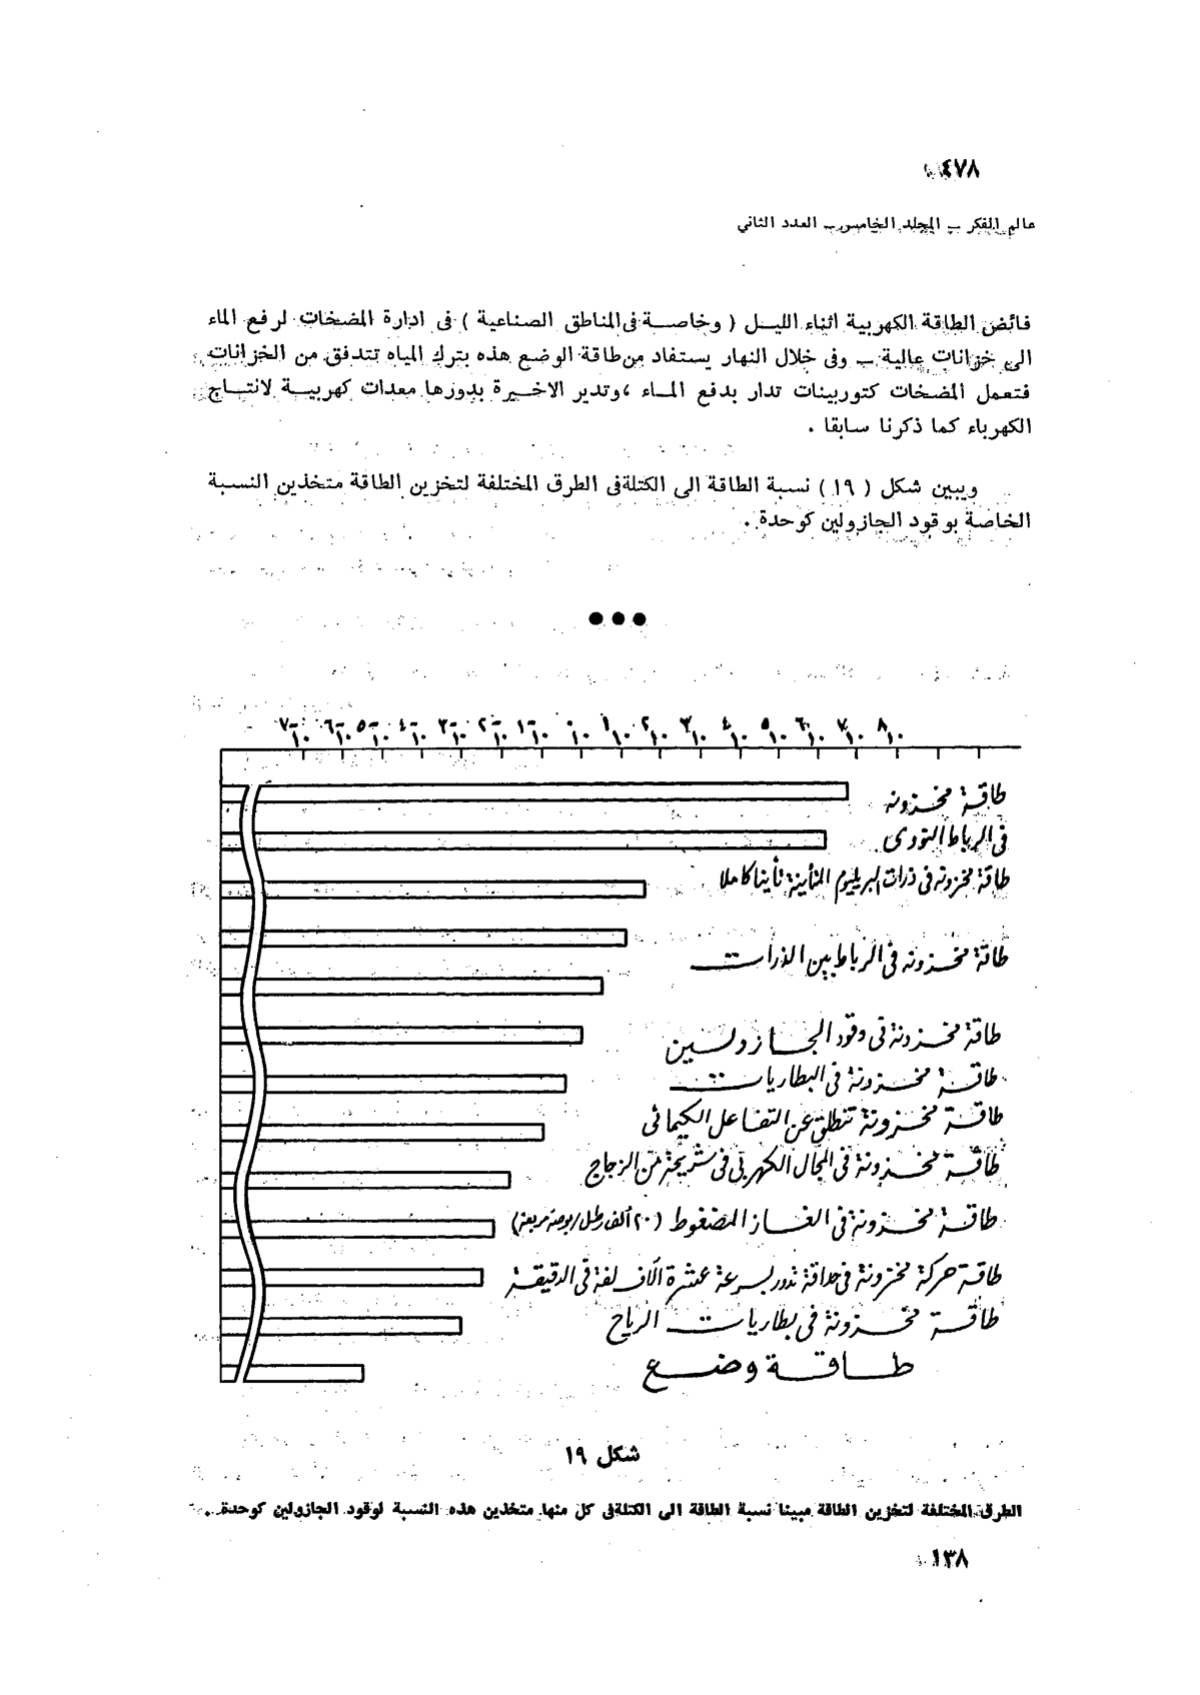 ٤٧٨
عالم الفكر ـ المجلد الخامس ـ العدد الثاني
فائض الطاقة الكهربية اثناء الليل ( وخاصة فى المناطق الصناعية ) فى ادارة المضخات لرفع الماء
الى خزانات عالية ـ وفى خلال النهار يستفاد من طاقة الوضع هذه بترك المياه تتدفق من الخزانات
فتعمل المضخات كتوربينات تدار بدفع الماء ، وتدير الاخيرة بدورها معدات كهربية لانتاج
الكهرباء كما ذكرنا سابقا .
ويبين شكل ( ١٩ ) نسبة الطاقة الى الكتلة فى الطرق المختلفة لتخزين الطاقة متخذين النسبة
الخاصة بوقود الجازولين كوحدة .
●●●
١٠^-٧ ١٠^-٦ ١٠^-٥ ١٠^-٤ ١٠^-٣ ١٠^-٢ ١٠^-١ ١٠^٠ ١٠^١ ١٠^٢ ١٠^٣ ١٠^٤ ١٠^٥ ١٠^٦ ١٠^٧ ١٠^٨
طاقة مخزونه
فى الرباط النووى
طاقة مخزونه فى ذرات البريليوم المتأينة تأينا كاملا
طاقة مخزونه فى الرباط بين الذرات
طاقة مخزونة فى وقود الجازولين
طاقة مخزونة فى البطاريات
طاقة مخزونة تنطلق عن التفاعل الكيمائى
طاقة مخزونة فى المجال الكهربى فى شريحة من الزجاج
طاقة مخزونة فى الغاز المضغوط (٢٠ ألف رطل/بوصة مربعة)
طاقة حركة مخزونة فى حدافة تدور بسرعة عشرة آلاف لفة فى الدقيقة
طاقة مخزونة فى بطاريات الرياح
طاقة وضع
شكل ١٩
الطرق المختلفة لتخزين الطاقة مبينا نسبة الطاقة الى الكتلة فى كل منها متخذين هذه النسبة لوقود الجازولين كوحدة .
١٣٨